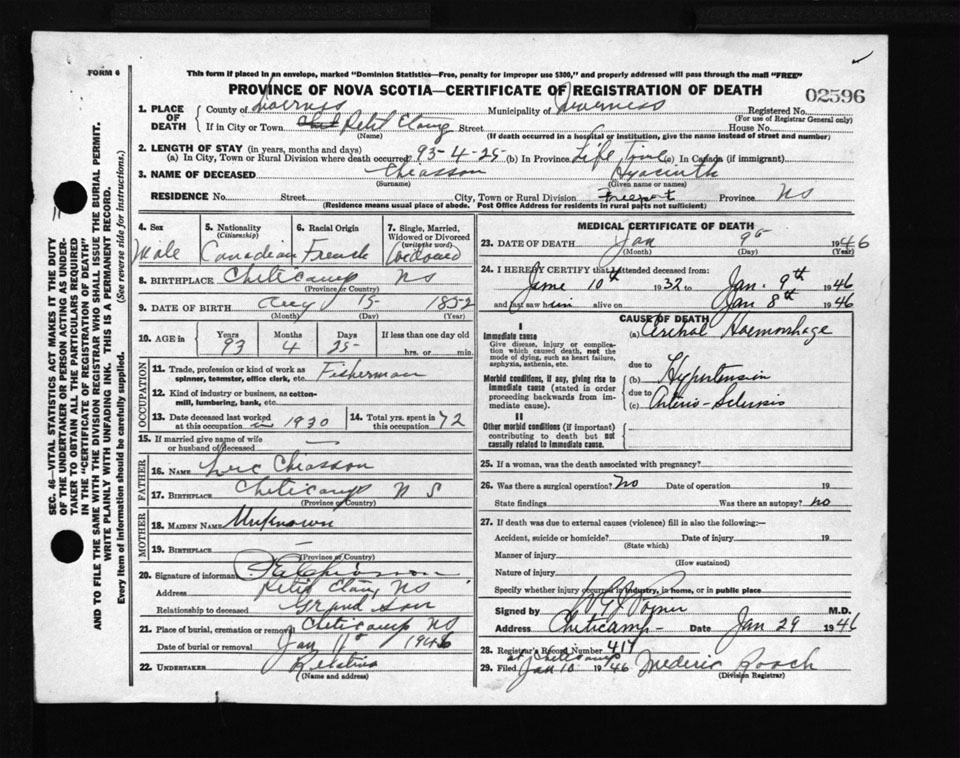 FORM 6
This form if placed in an envelope, marked "Dominion Statistics—Free, penalty for improper use $300," and properly addressed will pass through the mail "FREE"
PROVINCE OF NOVA SCOTIA—CERTIFICATE OF REGISTRATION OF DEATH
02596
1. PLACE OF DEATH County of Inverness Municipality of Inverness Registered No.
(For use of Registrar General only)
If in City or Town Petit Etang Street House No.
(Name) (If death occurred in a hospital or institution, give the name instead of street and number)
2. LENGTH OF STAY (in years, months and days)
(a) In City, Town or Rural Division where death occurred 93-4-25 (b) In Province Life Time (c) In Canada (if immigrant)
3. NAME OF DECEASED Chiasson Hyacinth
(Surname) (Given name or names)
RESIDENCE No. Street City, Town or Rural Division Province NS
(Residence means usual place of abode. Post Office Address for residents in rural parts not sufficient)
4. Sex Male
5. Nationality (Citizenship) Canadian
6. Racial Origin French
7. Single, Married, Widowed or Divorced (write the word) Widowed
8. BIRTHPLACE Cheticamp NS
(Province or Country)
9. DATE OF BIRTH Aug 15 1852
(Month) (Day) (Year)
10. AGE in Years 93 Months 4 Days 25 If less than one day old hrs. or min.
OCCUPATION
11. Trade, profession or kind of work as spinner, teamster, office clerk, etc. Fisherman
12. Kind of industry or business, as cotton-mill, lumbering, bank, etc.
13. Date deceased last worked at this occupation in 1930
14. Total yrs. spent in this occupation 72
15. If married give name of wife or husband of deceased —
FATHER
16. NAME Chiasson
17. BIRTHPLACE Cheticamp N S
(Province or Country)
MOTHER
18. MAIDEN NAME Unknown
19. BIRTHPLACE —
(Province or Country)
20. Signature of informant Chiasson
Address Petit Etang NS
Relationship to deceased Grand Son
21. Place of burial, cremation or removal Cheticamp NS
Date of burial or removal Jan 11 1946
22. UNDERTAKER Relative
(Name and address)
MEDICAL CERTIFICATE OF DEATH
23. DATE OF DEATH Jan 9 1946
(Month) (Day) (Year)
24. I HEREBY CERTIFY that I attended deceased from:
June 10th 1932 to Jan. 9th 1946
and last saw him alive on Jan 8th 1946
CAUSE OF DEATH
I
Immediate cause
Give disease, injury or complication which caused death, not the mode of dying, such as heart failure, asphyxia, asthenia, etc.
(a) Cerebral Haemorrhage
due to
Morbid conditions, if any, giving rise to immediate cause (stated in order proceeding backwards from immediate cause).
(b) Hypertension
due to
(c) Arterio-Sclerosis
II
Other morbid conditions (if important) contributing to death but not causally related to immediate cause.
25. If a woman, was the death associated with pregnancy?
26. Was there a surgical operation? No Date of operation 19
State findings Was there an autopsy? no
27. If death was due to external causes (violence) fill in also the following:—
Accident, suicide or homicide? Date of injury 19
(State which)
Manner of injury
(How sustained)
Nature of injury
Specify whether injury occurred in industry, in home, or in public place
Signed by M.D.
Address Cheticamp Date Jan 29 1946
28. Registrar's Record Number 414
29. Filed at Cheticamp Jan 10 1946 Mederic Roach
(Division Registrar)
SEC. 46—VITAL STATISTICS ACT MAKES IT THE DUTY
OF THE UNDERTAKER OR PERSON ACTING AS UNDER-
TAKER TO OBTAIN ALL THE PARTICULARS REQUIRED
IN THE "CERTIFICATE OF REGISTRATION OF DEATH"
AND TO FILE THE SAME WITH THE DIVISION REGISTRAR WHO SHALL ISSUE THE BURIAL PERMIT.
WRITE PLAINLY WITH UNFADING INK. THIS IS A PERMANENT RECORD.
Every item of information should be carefully supplied. (See reverse side for instructions.)